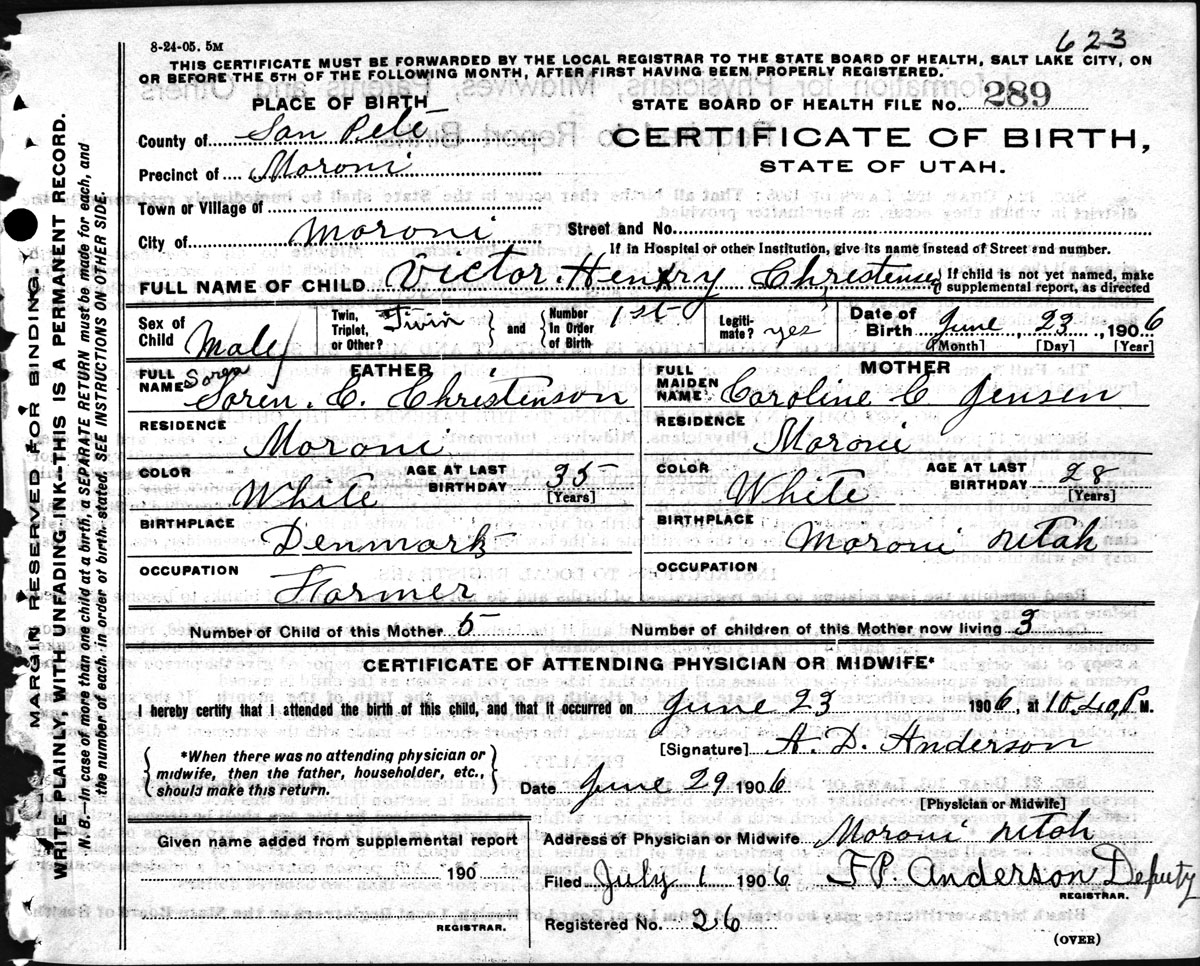 623
8-24-05. 5M
THIS CERTIFICATE MUST BE FORWARDED BY THE LOCAL REGISTRAR TO THE STATE BOARD OF HEALTH, SALT LAKE CITY, ON
OR BEFORE THE 5TH OF THE FOLLOWING MONTH, AFTER FIRST HAVING BEEN PROPERLY REGISTERED.
PLACE OF BIRTH
STATE BOARD OF HEALTH FILE No. 289
County of San Pete
CERTIFICATE OF BIRTH,
STATE OF UTAH.
Precinct of Moroni
Town or Village of
City of Moroni Street and No.
If in Hospital or other Institution, give its name instead of Street and number.
FULL NAME OF CHILD Victor Henry Christensen { If child is not yet named, make
supplemental report, as directed
Sex of Child Male Twin, Triplet, or Other? Twin } and { Number In Order of Birth 1st Legiti-mate? yes Date of Birth June 23, 1906
[Month] [Day] [Year]
FATHER MOTHER
FULL NAME Soren Soren. C. Christenson FULL MAIDEN NAME Caroline C Jensen
RESIDENCE Moroni RESIDENCE Moroni
COLOR White AGE AT LAST BIRTHDAY 35 [Years] COLOR White AGE AT LAST BIRTHDAY 28 [Years]
BIRTHPLACE Denmark BIRTHPLACE Moroni Utah
OCCUPATION Farmer OCCUPATION
Number of Child of this Mother 5 Number of children of this Mother now living 3
CERTIFICATE OF ATTENDING PHYSICIAN OR MIDWIFE*
I hereby certify that I attended the birth of this child, and that it occurred on June 23 1906, at 10.40 P M.
{ *When there was no attending physician or
midwife, then the father, householder, etc.,
should make this return. }
[Signature] A. D. Anderson
Date June 29 1906
[Physician or Midwife]
Given name added from supplemental report
190
REGISTRAR.
Address of Physician or Midwife Moroni Utah
Filed July 1 1906 F P. Anderson Deputy
REGISTRAR.
Registered No. 26
(OVER)
MARGIN RESERVED FOR BINDING.
WRITE PLAINLY, WITH UNFADING INK—THIS IS A PERMANENT RECORD.
N. B.—In case of more than one child at a birth, a SEPARATE RETURN must be made for each, and
the number of each in order of birth stated. SEE INSTRUCTIONS ON OTHER SIDE.